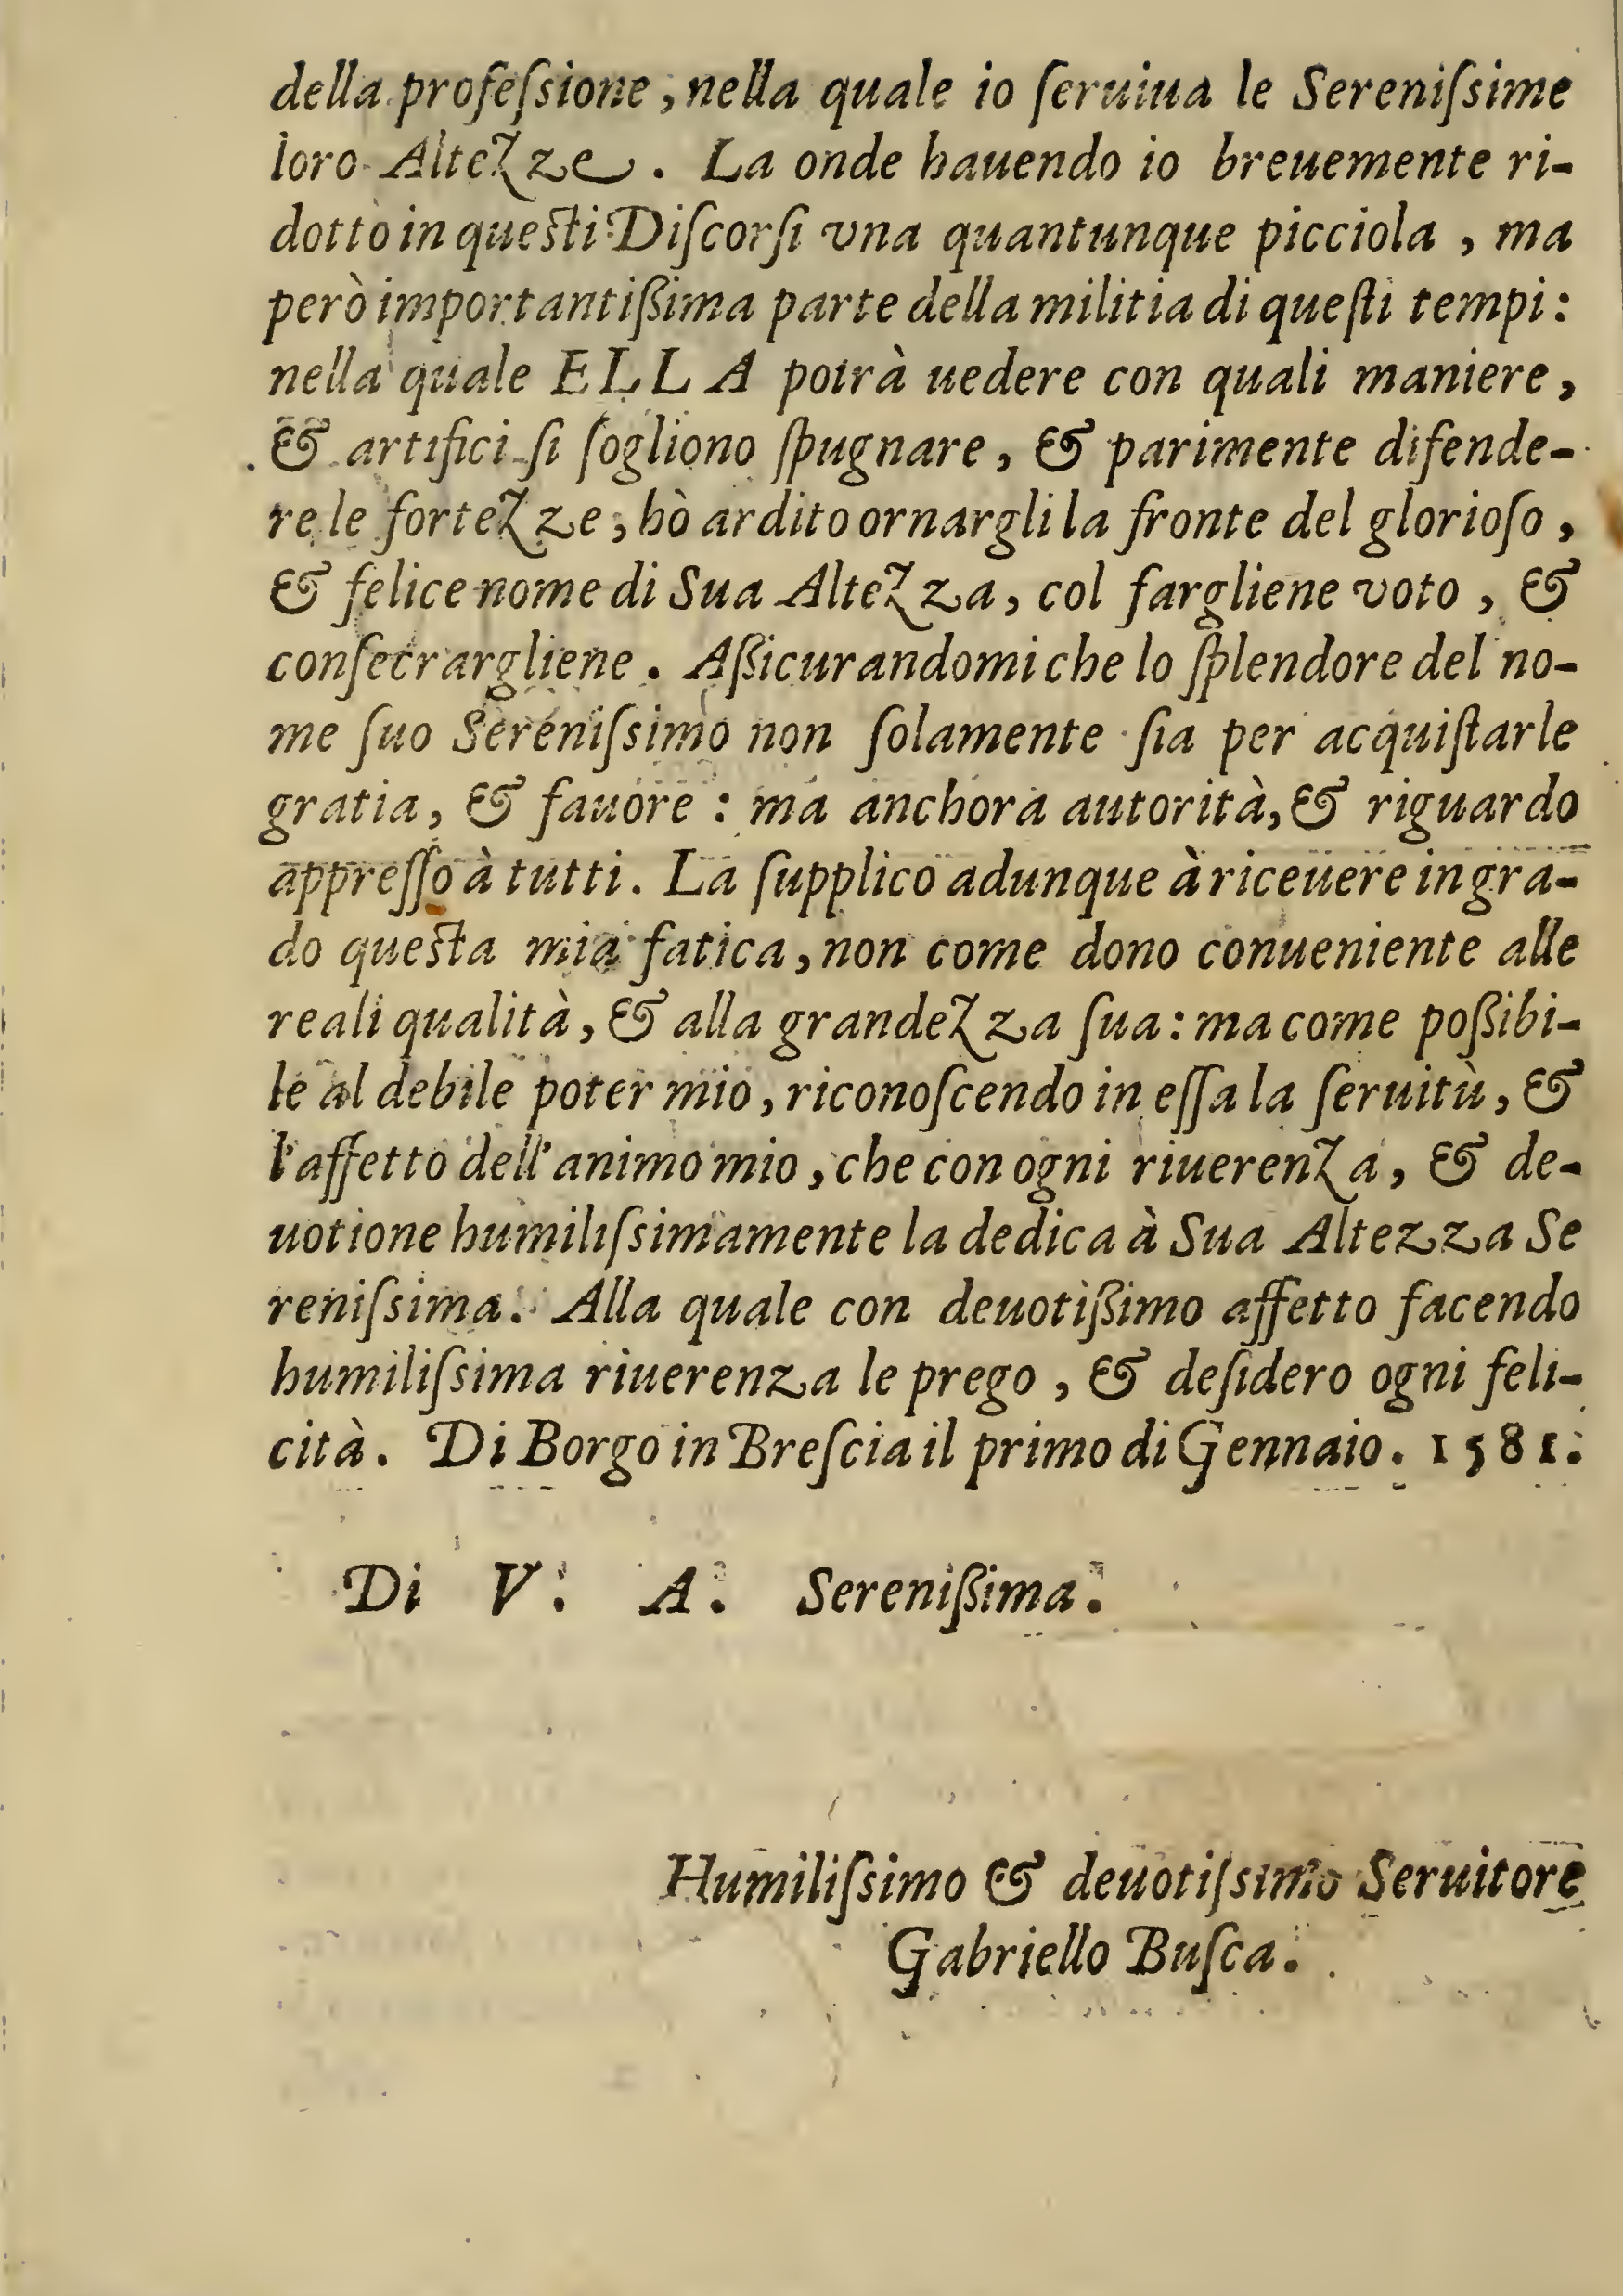 della professione, nella quale io ſeruiua le Sereniſsime
loro Altezze. La onde hauendo io breuemente ri-
dotto in queſti Diſcorſi vna quantunque picciola, ma
però importantißima parte della militia di queſti tempi:
nella quale ELLA potrà uedere con quali maniere,
& artifici ſi ſogliono ſpugnare, & parimente difende-
re le fortezze, hò ardito ornargli la fronte del glorioſo,
& felice nome di Sua Altezza, col fargliene voto, &
conſecrargliene. Aßicurandomi che lo ſplendore del no-
me ſuo Sereniſsimo non ſolamente ſia per acquiſtarle
gratia, & fauore: ma anchora autorità, & riguardo
appreſſo à tutti. La ſupplico adunque à riceuere in gra-
do queſta mia fatica, non come dono conueniente alle
reali qualità, & alla grandezza ſua: ma come poßibi-
le al debile poter mio, riconoſcendo in eſſa la ſeruitù, &
l'affetto dell'animo mio, che con ogni riuerenza, & de-
uotione humiliſsimamente la dedica à Sua Altezza Se
reniſsima. Alla quale con deuotißimo affetto facendo
humiliſsima riuerenza le prego, & deſidero ogni feli-
cità. Di Borgo in Breſcia il primo di Gennaio. 1581.
Di V. A. Serenißima.
Humiliſsimo & deuotiſsimo Seruitore
Gabriello Buſca.